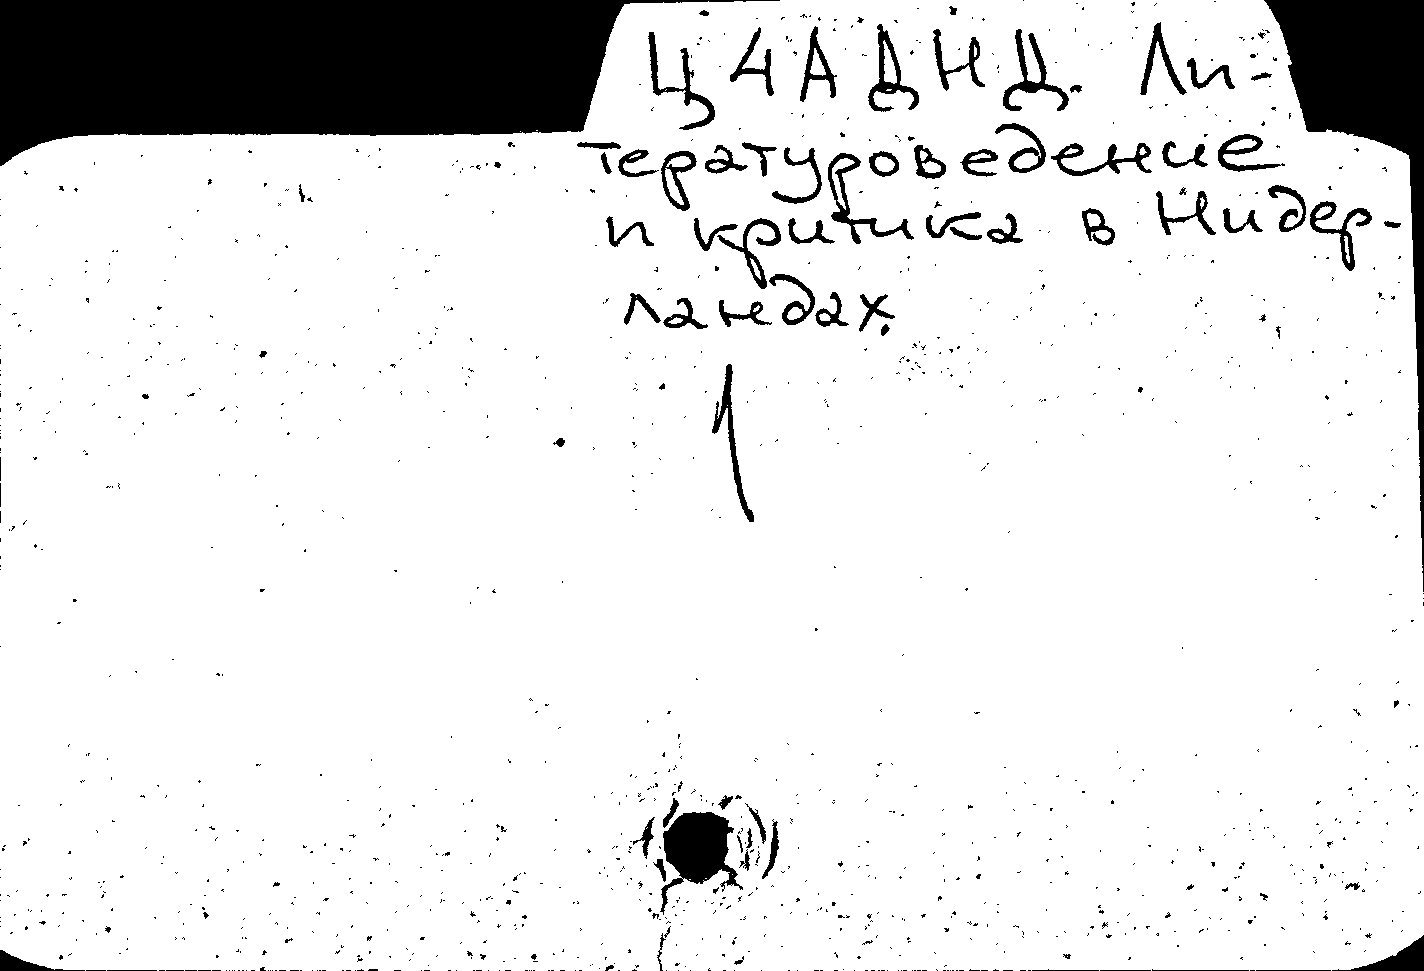 Ц4АДНД. Ли-
тературоведение
и критика в Нидер-
ландах.
1